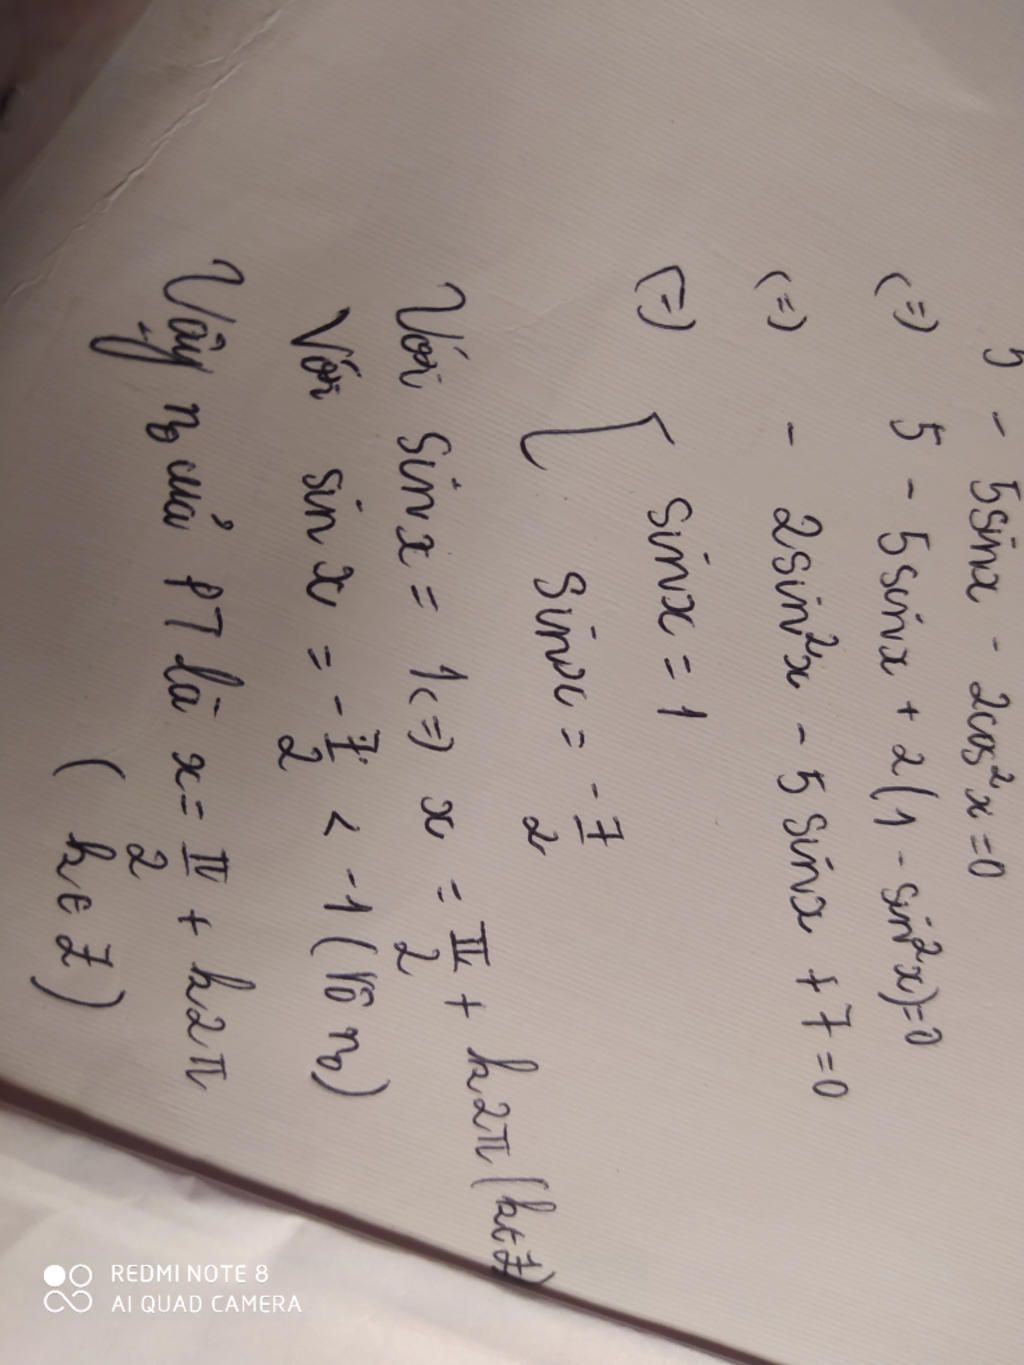 5 - 5sinx - 2cos²x = 0
(=) 5 - 5sinx + 2(1 - sin²x) = 0
(=) - 2sin²x - 5sinx + 7 = 0
(=) [ sinx = 1
sinx = -7/2
Với sinx = 1 (=) x = π/2 + k2π (k∈Z)
Với sinx = -7/2 < -1 (vô no)
Vậy no của PT là x = π/2 + k2π
(k∈Z)
REDMI NOTE 8
AI QUAD CAMERA